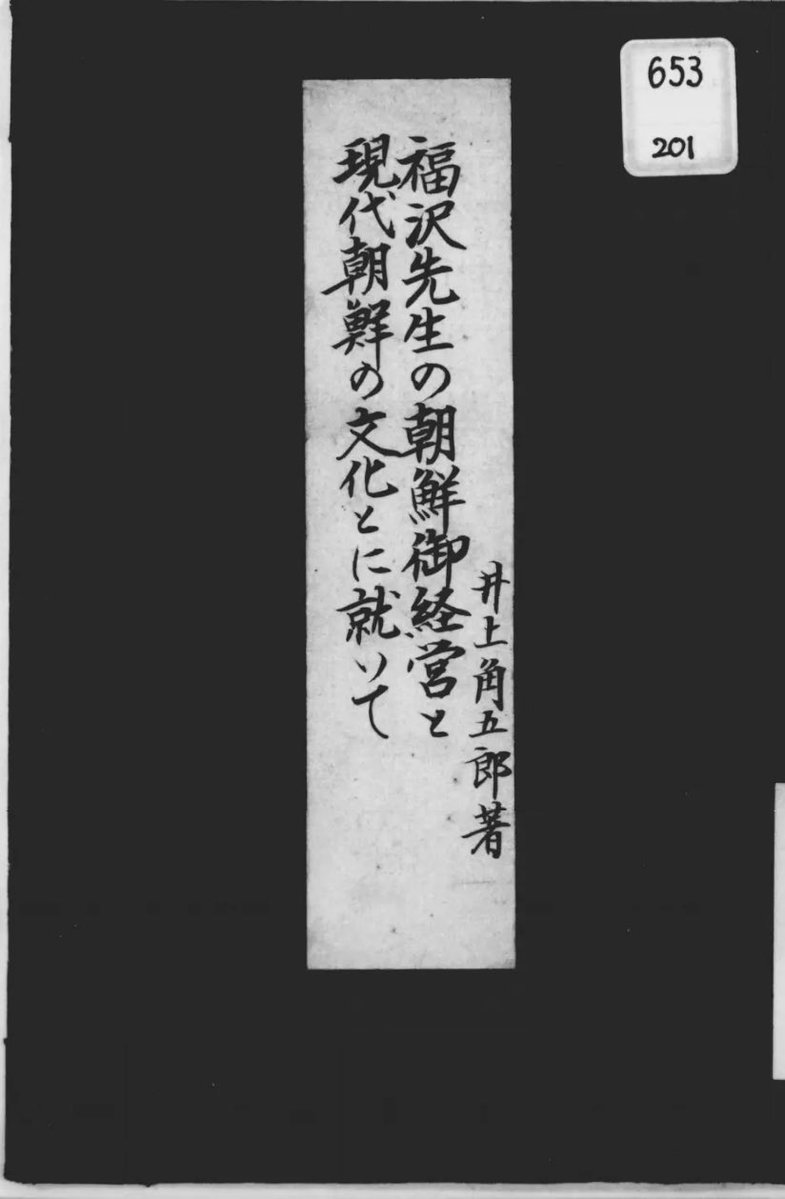 653
201
井上角五郎著
福沢先生の朝鮮御経営と
現代朝鮮の文化とに就いて